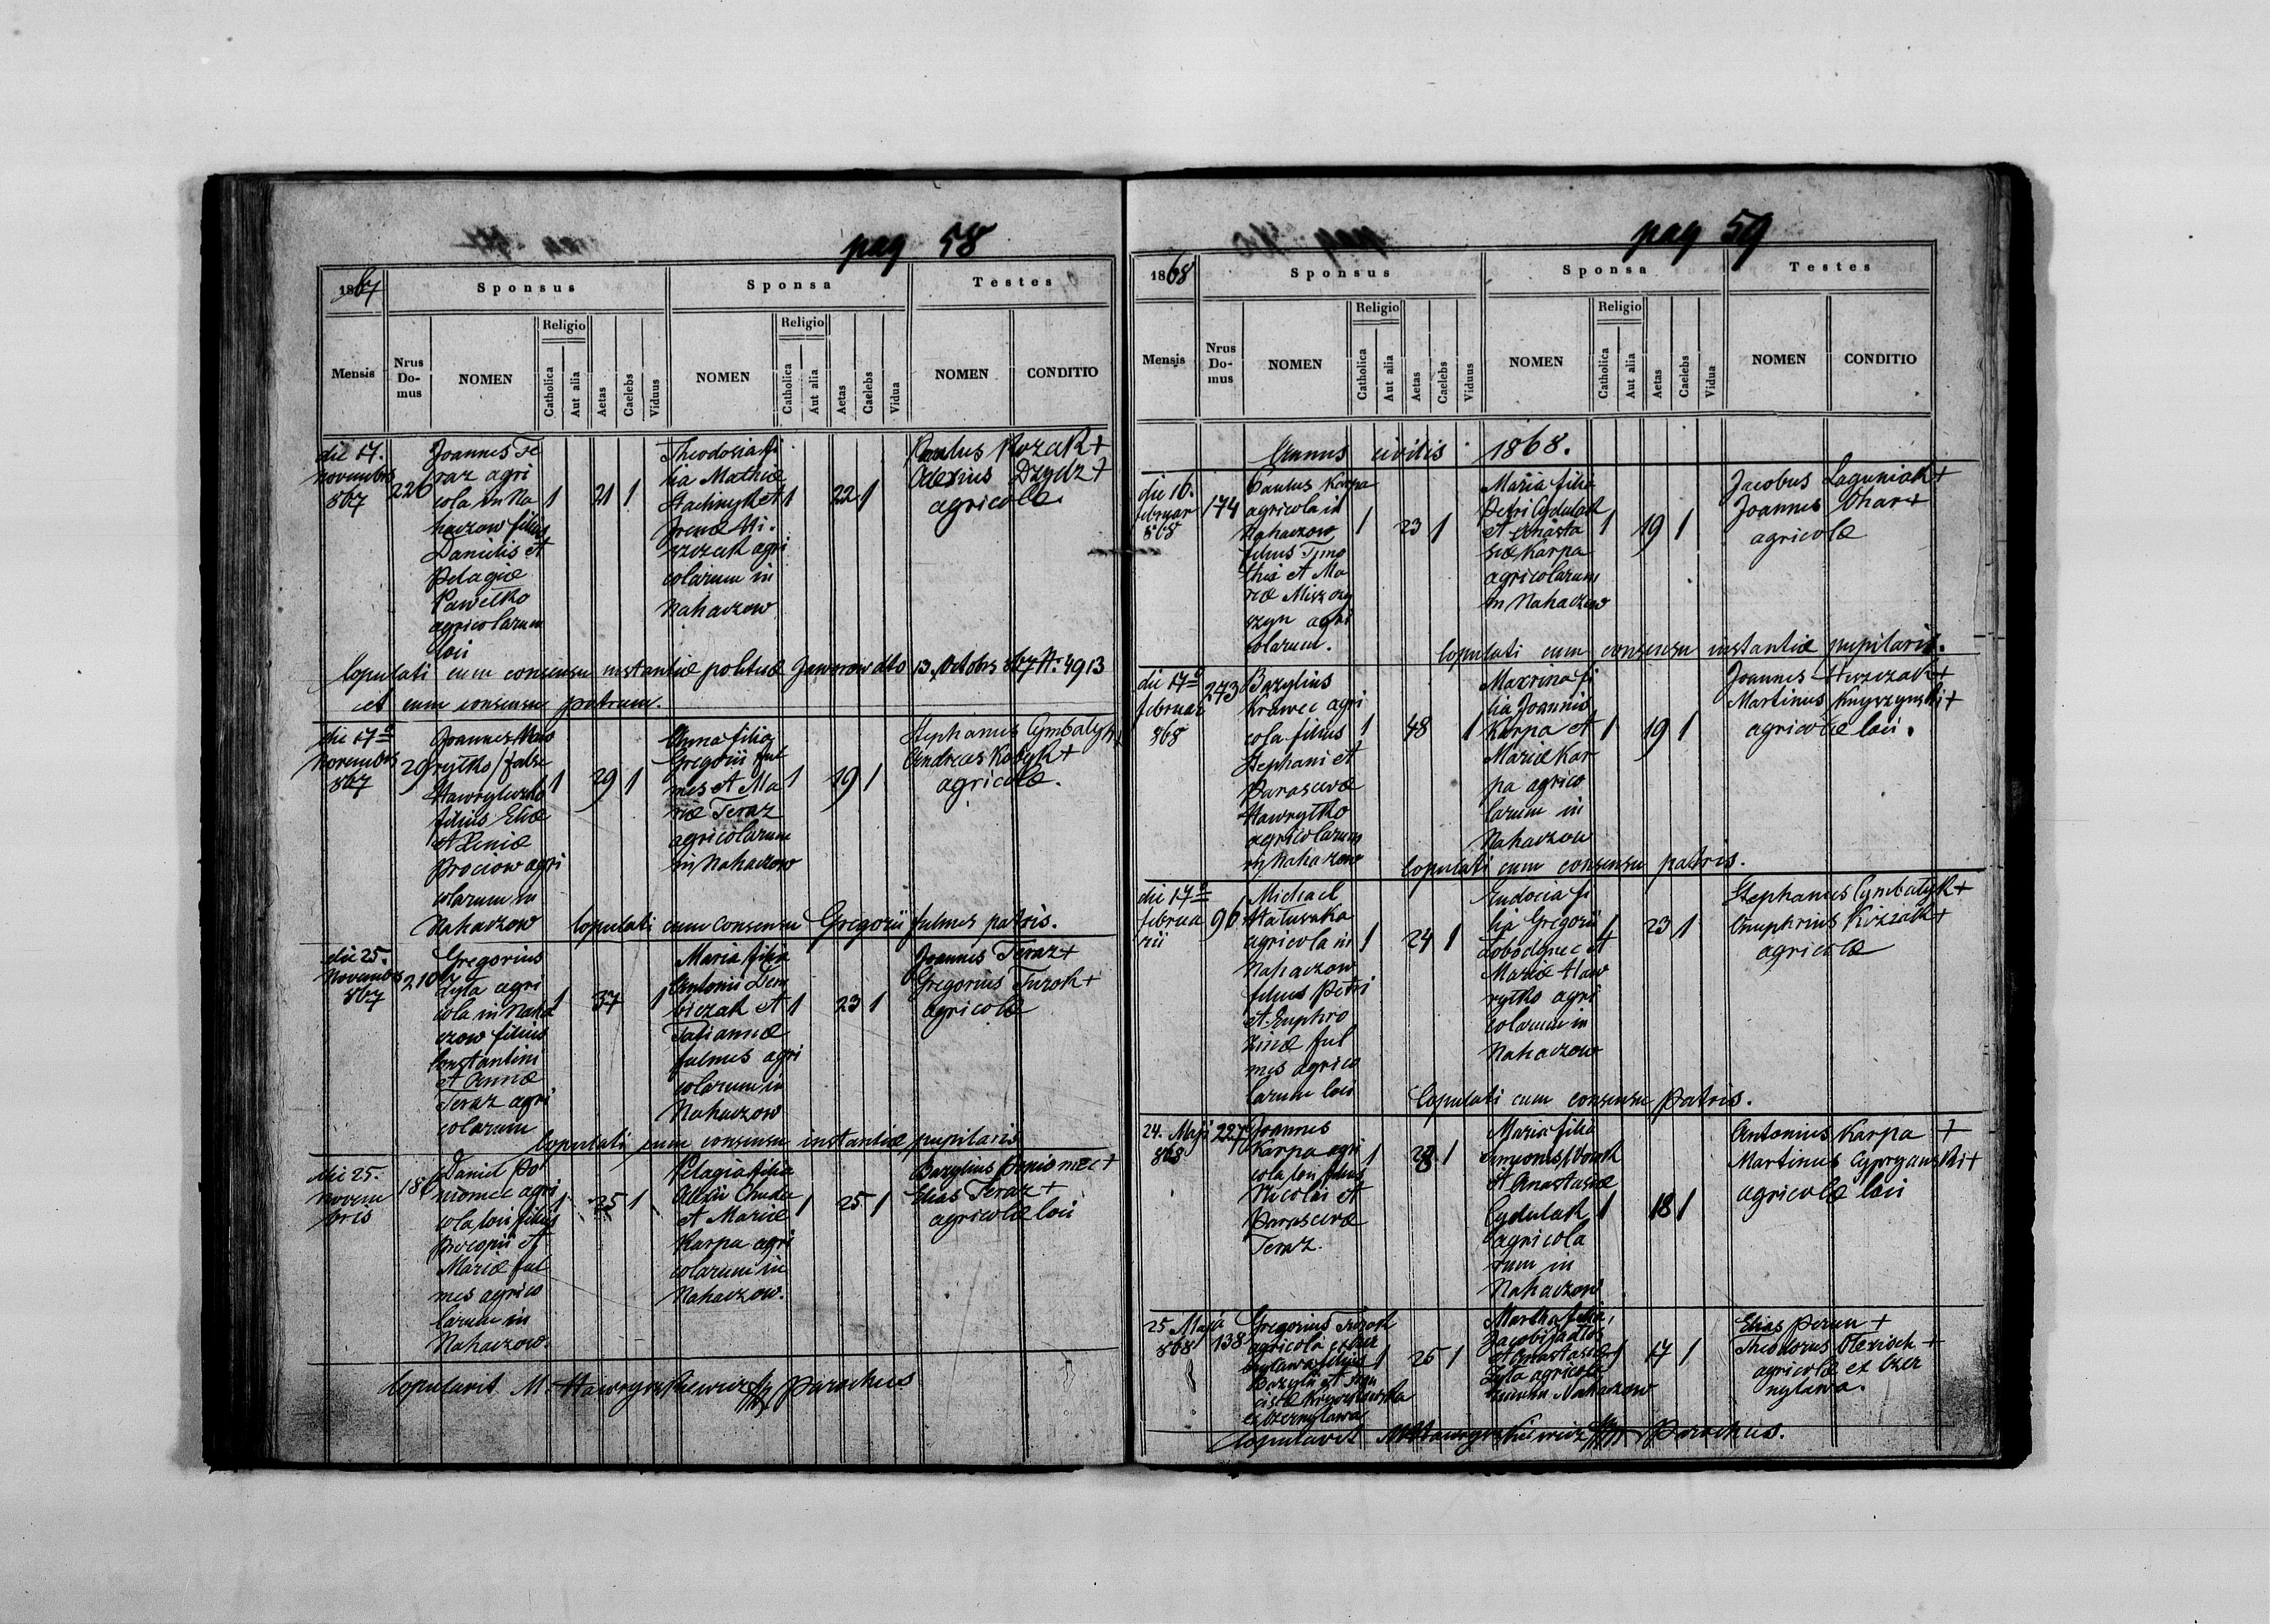 pag 58
1867 Sponsus Sponsa Testes
Mensis Nrus Do- mus NOMEN Religio Catholica Aut alia Aetas Caelebs Viduus NOMEN Religio Catholica Aut alia Aetas Caelebs Vidua NOMEN CONDITIO
die 17.
novembris
867
226
Joannes Te
raz agri
cola in Na
haczow filius
Danielis et
Pelagiæ
Pawełko
agricolarum
loci
1 21 1
Theodosia fi
lia Mathiæ
Stachnyk et
Irenæ Mi
szczak agri
colarum in
Nahaczow
1 22 1
Paulus Kozak +
Alexius Dzydz +
agricolæ
Copulati cum consensu instantiæ politicæ Jaworow dto 13. Octobris 867 N: 4913
et cum consensu patrum.
die 17ª
novembris
867
29
Joannes Haw
ryłko / false
Hawryleczko
filius Eliæ
et Xeniæ
Prociow agri
colarum in
Nahaczow
1 29 1
Anna filia
Gregorii Ful
mes et Ma
riæ Teraz
agricolarum
in Nahaczow
1 19 1
Stephanus Cymbalyk +
Andreas Kobyk +
agricolæ.
Copulati cum consensu Gregorii Fulmes patris.
die 25.
Novembris
867
210
Gregorius
Zyła agri
cola in Naha
czow filius
Constantini
et Annæ
Teraz agri
colarum
1 37 1
Maria filia
Antonii Dem
biczak et
Tatiannæ
Fulmes agri
colarum in
Nahaczow
1 23 1
Joannes Teraz +
Gregorius Turok +
agricolæ
Copulati cum consensu instantiæ pupilaris
die 25.
Novem
bris
Daniel
agri
cola loci filius
Procopii et
Mariæ Ful
mes agrico
larum in
Nahaczow.
1 25 1
Pelagia filia
et Mariæ
Karpa agri
colarum in
Nahaczow.
1 25 1
Bazylius
Elias Teraz +
agricolæ loci
Copulavit M. Hawryszkiewicz parochus
pag 59
1868 Sponsus Sponsa Testes
Mensis Nrus Do- mus NOMEN Religio Catholica Aut alia Aetas Caelebs Viduus NOMEN Religio Catholica Aut alia Aetas Caelebs Vidua NOMEN CONDITIO
Annus civilis 1868.
die 16.
februar
868
174
Paulus Karpa
agricola in
Nahaczow
filius Timo
thei et Ma
riæ Miszczy
szyn agri
colarum.
1 23 1
Maria filia
Petri Cydulak
et Anasta
siæ Karpa
agricolarum
in Nahaczow
1 19 1
Jacobus Laguniak +
Joannes Ohar +
agricolæ
Copulati cum consensu instantiæ pupilaris.
die 17ª
februar
868
243
Bazylius
Krawec agri
cola filius
Stephani et
Parascevæ
Hawryłko
agricolarum
in Nahaczow
1 48 1
Maxrina fi
lia Joannis
Karpa et
Mariæ Kar
pa agrico
larum in
Nahaczow
1 19 1
Joannes
Martinus Knyszynski +
agricolæ loci.
Copulati cum consensu patris.
die 17ª
februa
rii
96
Michael
agricola in
Nahaczow
filius Petri
et Euphro
zinæ Ful
mes agrico
larum loci
1 24 1
Eudocia fi
lia Gregorii
et
Mariæ Haw
ryłko agri
colarum in
Nahaczow
1 23 1
Stephanus Cymbalyk +
Onuphrius Kizzak +
agricolæ
Copulati cum consensu patris.
24. Maji
868
227
Joannes
Karpa agri
cola loci filius
Nicolai et
Parascevæ
Teraz.
1 28 1
Maria filia
Simeonis
et Anastasiæ
Cydulak
agricola
rum in
Nahaczow
1 18 1
Antonius Karpa +
Martinus Cypryanski +
agricolæ loci
25 Maja
868
138
Gregorius Turok
agricola ex Czer
nylawa filius
Bazylii et
ex Czernylawa
1 26 1
Martha filia
Jacobi
et Anastasiæ
Zyła agricola
rum in Nahaczow
1 17 1
Elias Perun +
Theodorus Olexisch +
agricolæ ex Czer
nylawa.
Copulavit M. Hawryszkiewicz Parochus.